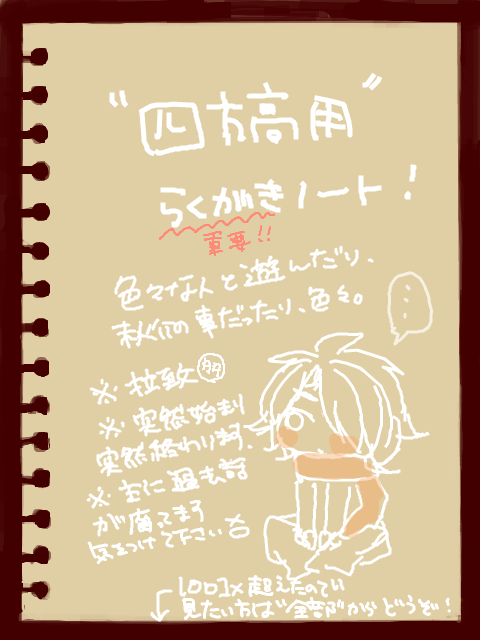 "四方高用"
らくがきノート!
重要!!
色々な人と遊んだり、
秘の事だったり、色々。
※拉致多
※突然始まり
突然終わります.
※主に過去話
が腐ってます
気をつけて下さい
100コメ超えたので
見たい方は"全部"からどうぞ!